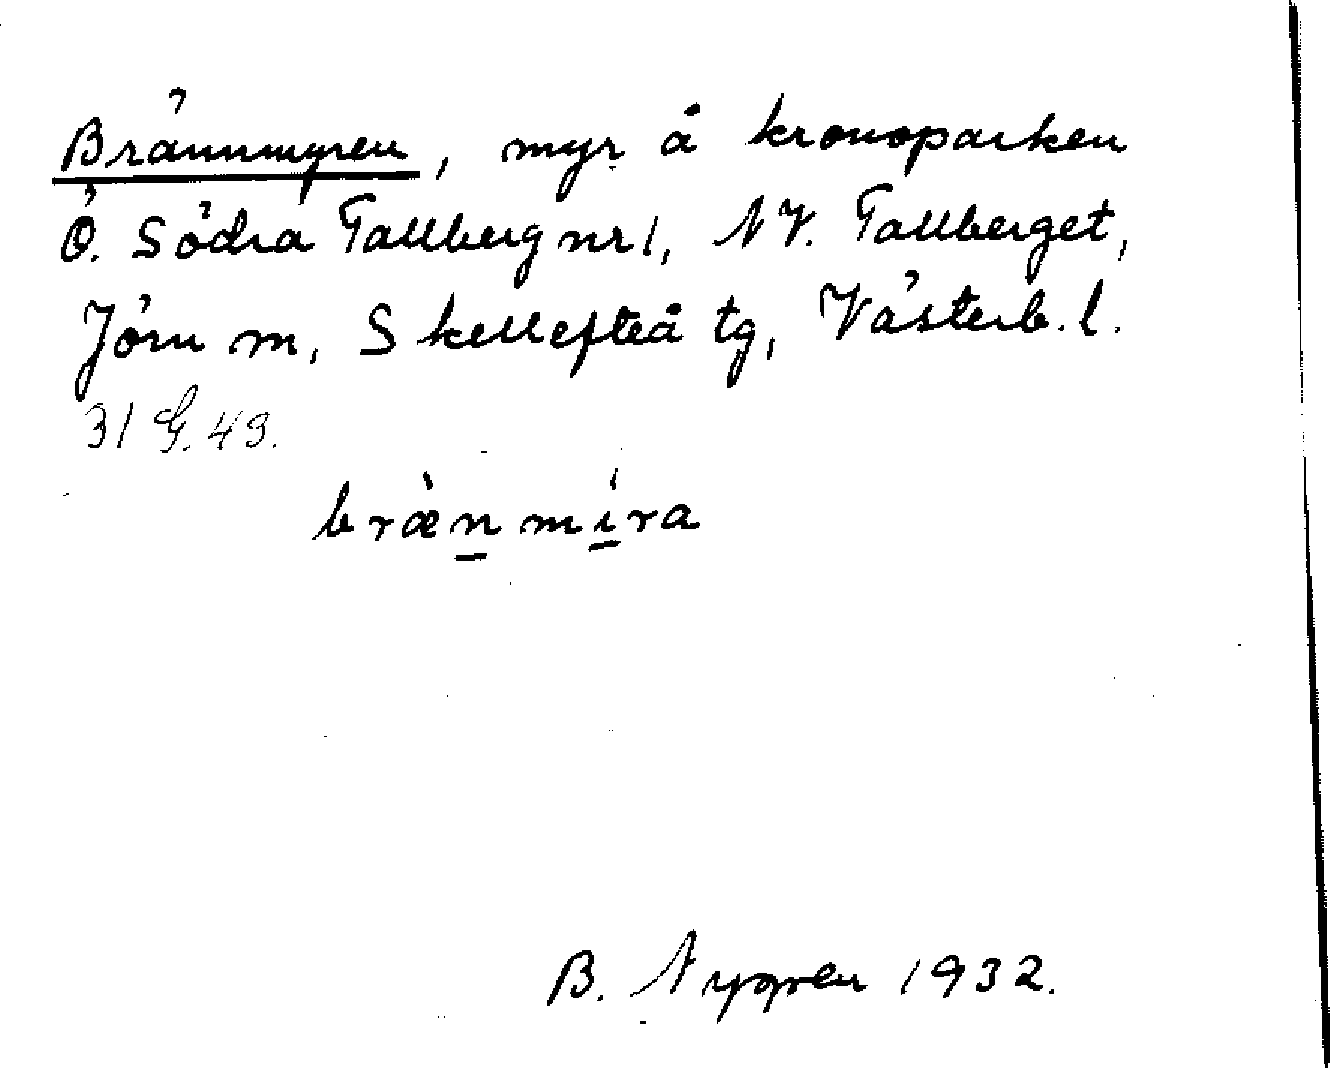 Brännmyren, myr å kronoparken
Ö. Södra Tallberg nr 1, NV. Tallberget,
Jörn sn, Skellefteå tg, Västerb. l.
31 G. 43.
bræ̀n míra
B. Nygren 1932.